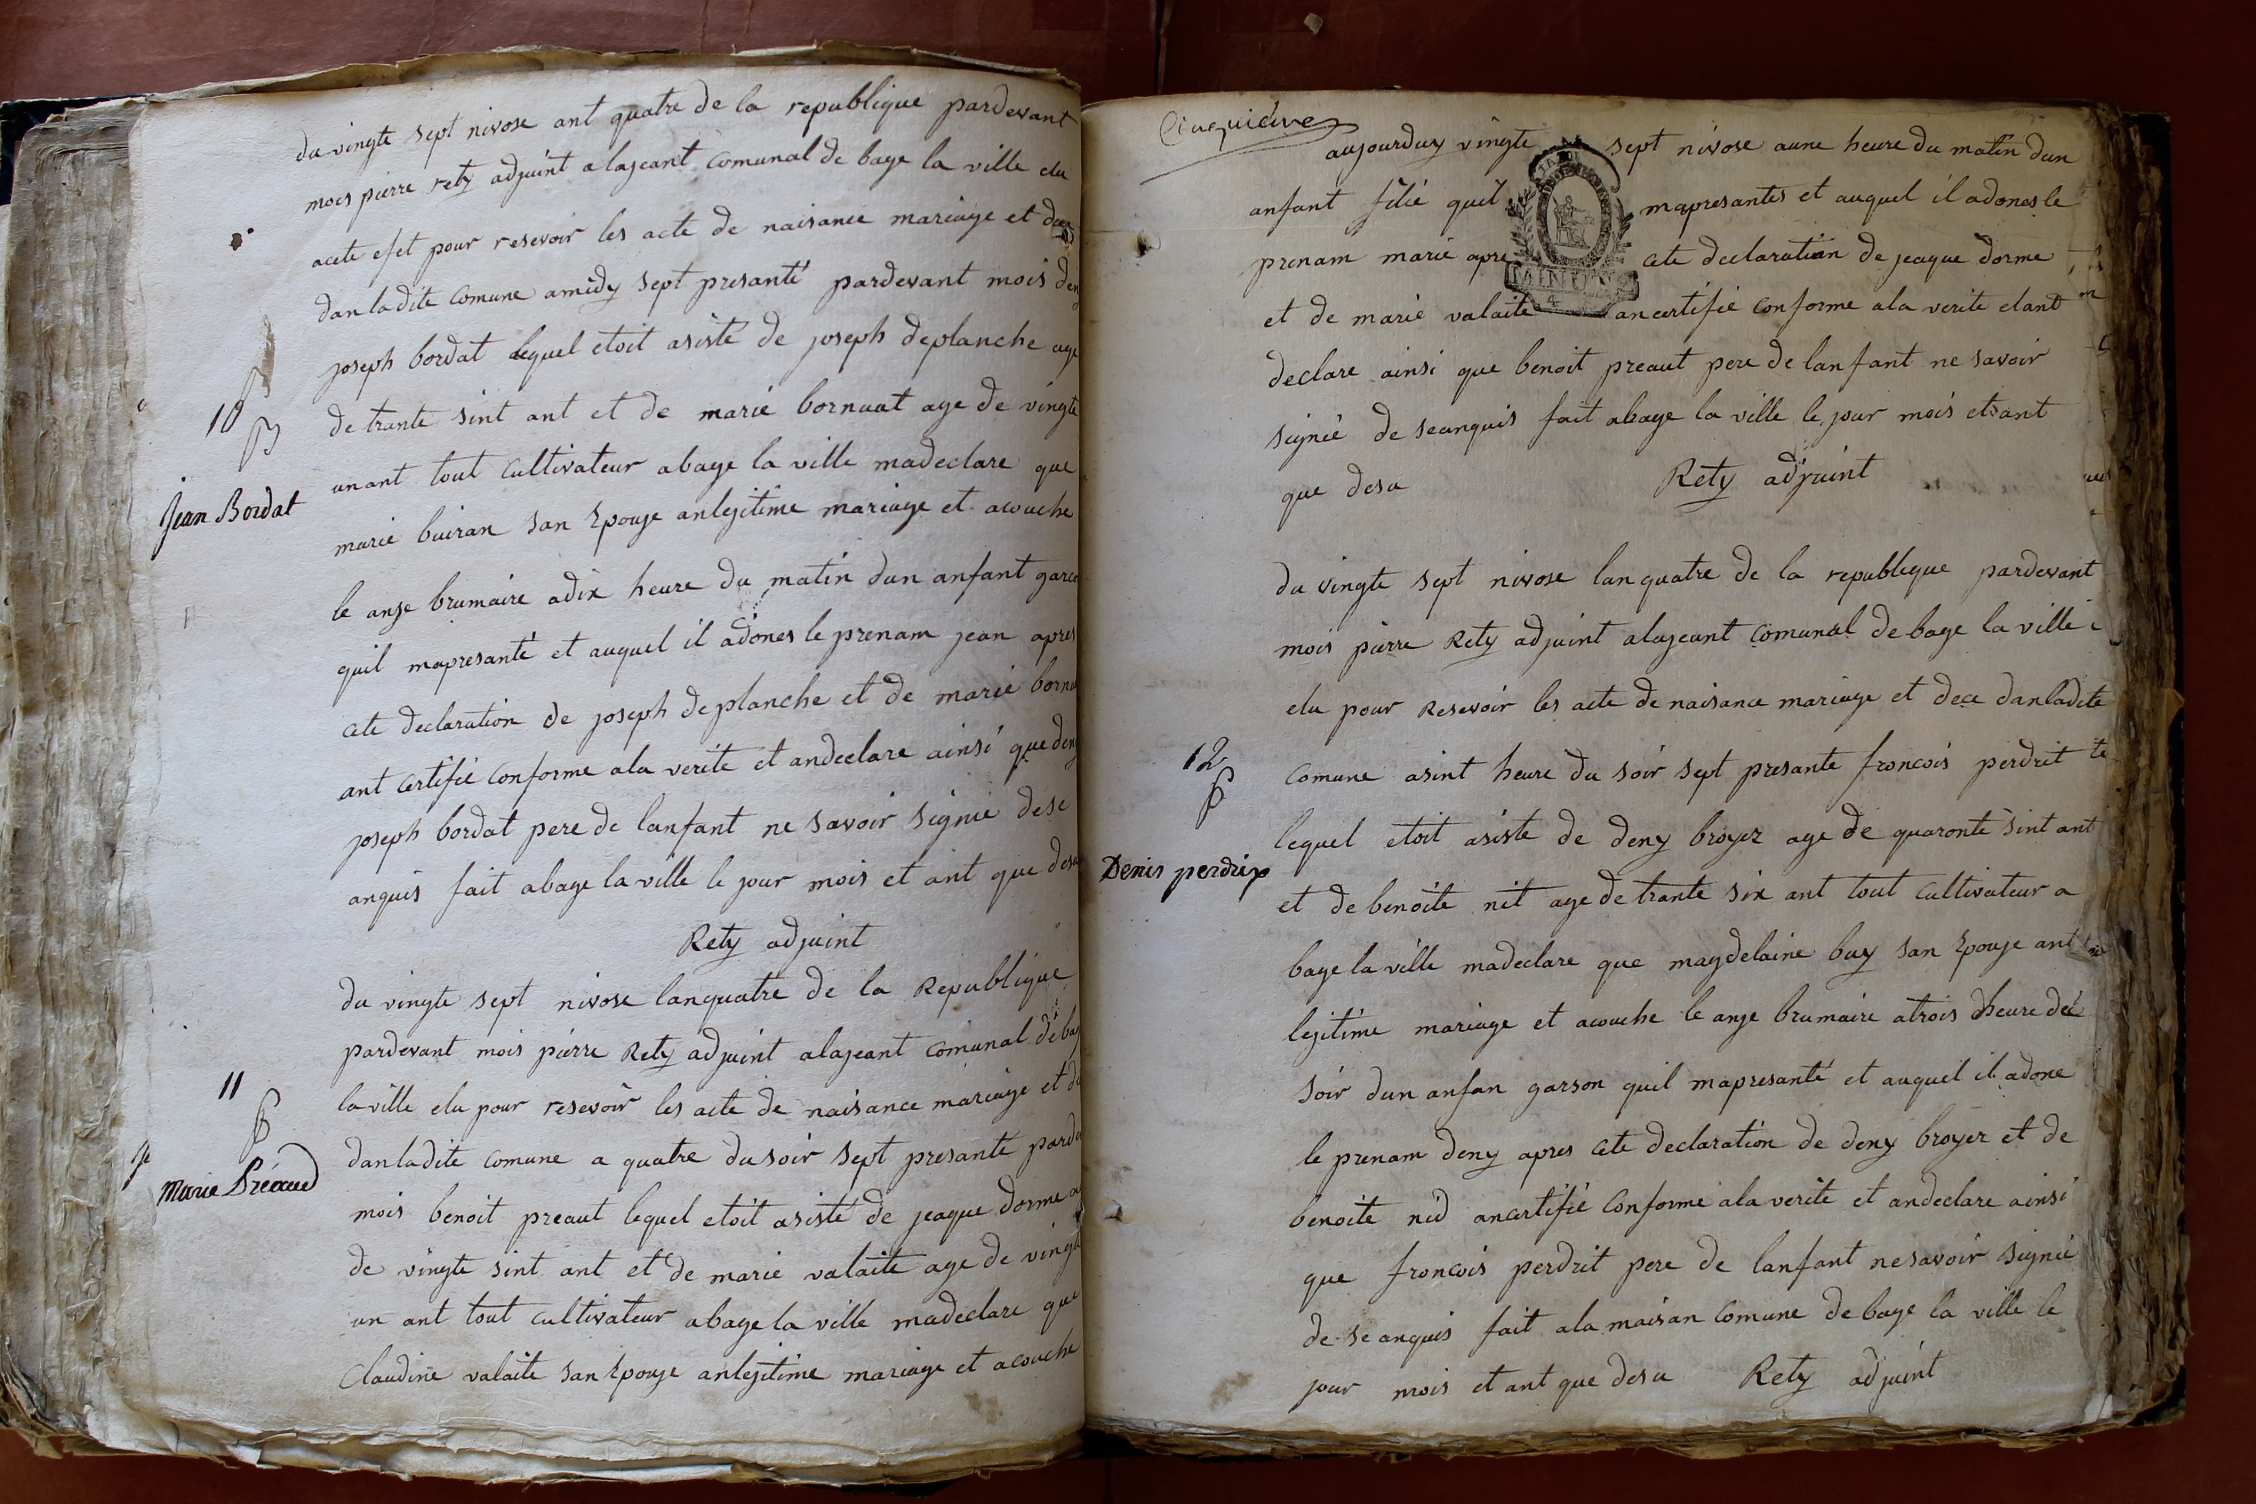 du vingte sept nivose ant quatre de la republique pardevant
mois pierre rety adjuint alajeant comunal de bage la ville elu
acete efet pour resevoir les acte de naisance mariage et
dan ladite comune amidy sept presanté pardevant mois
joseph bordat lequel etoit asisté de joseph deplanche age
de trante sint ant et de marie bornuat age de vingte
unant tout cultivateur abage la ville madeclare que
marie buiran san Epouje anlejitime mariage et acouche
le anje brumaire adix heure du matin dun anfant
quil mapresanté et auquel il adones le prenam jean apres
cete declaration de joseph deplanche et de marie
ant certifié conforme ala verite et andeclare ainsi que
joseph bordat pere de lanfant ne savoir signié de se
anquis fait abage la ville le jour mois et ant que
Rety adjuint
du vingte sept nivose lanquatre de la Republique
pardevant mois pierre Rety adjuint alajeant comunal de
la ville elu pour resevoir les acte de naisance mariage et
dan ladite comune a quatre du soir sept presanté
mois benoit preaut lequel etoit asisté de jeaque dorme
de vingte sint ant et de marie valaite age de
un ant tout cultivateur abage la ville madeclare que
Claudine valaite san Epouje anlejitime mariage et acouche
10
Jean Bordat
11
Marie Préaud
Cinquième
aujourduy vingte sept nivose aune heure du matin dun
anfant filié quil mapresantés et auquel il adones le
prenam marie apre cete declaration de jeaque dorme
et de marie valaite ancertifié conforme ala verite et ant
declare ainsi que benoit preaut pere de lanfant ne savoir
signié de seanquis fait abage la ville le jour mois et ant
que desu Rety adjuint
du vingte sept nivose lanquatre de la republeque pardevant
mois pierre Rety adjuint alajeant comunal de bage la ville
elu pour Resevoir les acte de naisance mariage et dece danladite
comune asint heure du soir sept presante froncois perdrit
lequel etoit asiste de deny broyer age de quaronte sint ant
et de benoite nit age de trante six ant tout cultivateur a
bage la ville madeclare que magdelaine buy san Epouje ant
lejitime mariage et acouche le anje brumaire atrois heure
soir dun anfan garson quil mapresanté et auquel il adone
le prenam deny apres cete declaration de deny broyer et de
benoite nid ancertifié Conforme ala verite et andeclare ainsi
que froncois perdrit pere de lanfant nesavoir signié
de se anquis fait ala maisan comune de bage la ville le
jour mois et ant que desu Rety adjuint
12
Denis perdrix
MINUTS
4